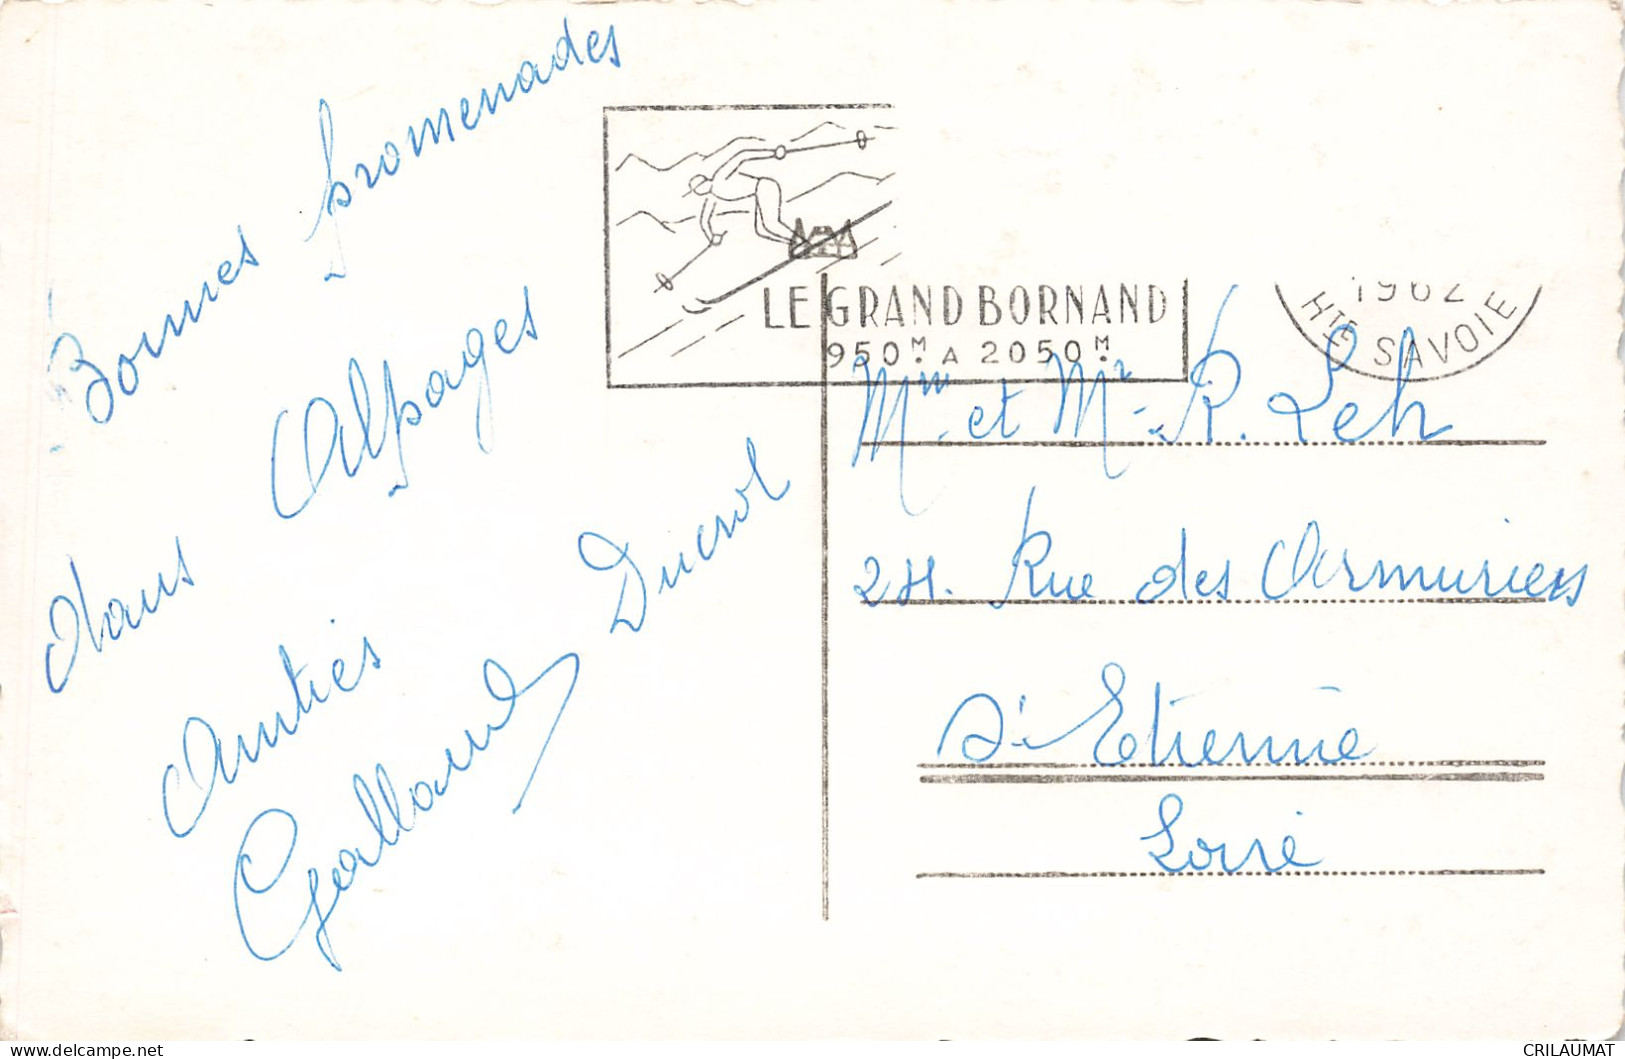 Bonnes promenades
dans Alpages
Amitiés
Galland Ducrot
LE GRAND BORNAND
950M. A 2050M.
1962
HTE SAVOIE
Mme et Mr. R. Leh
24. Rue des Armuriers
St Etienne
Loire
CRILAUMAT